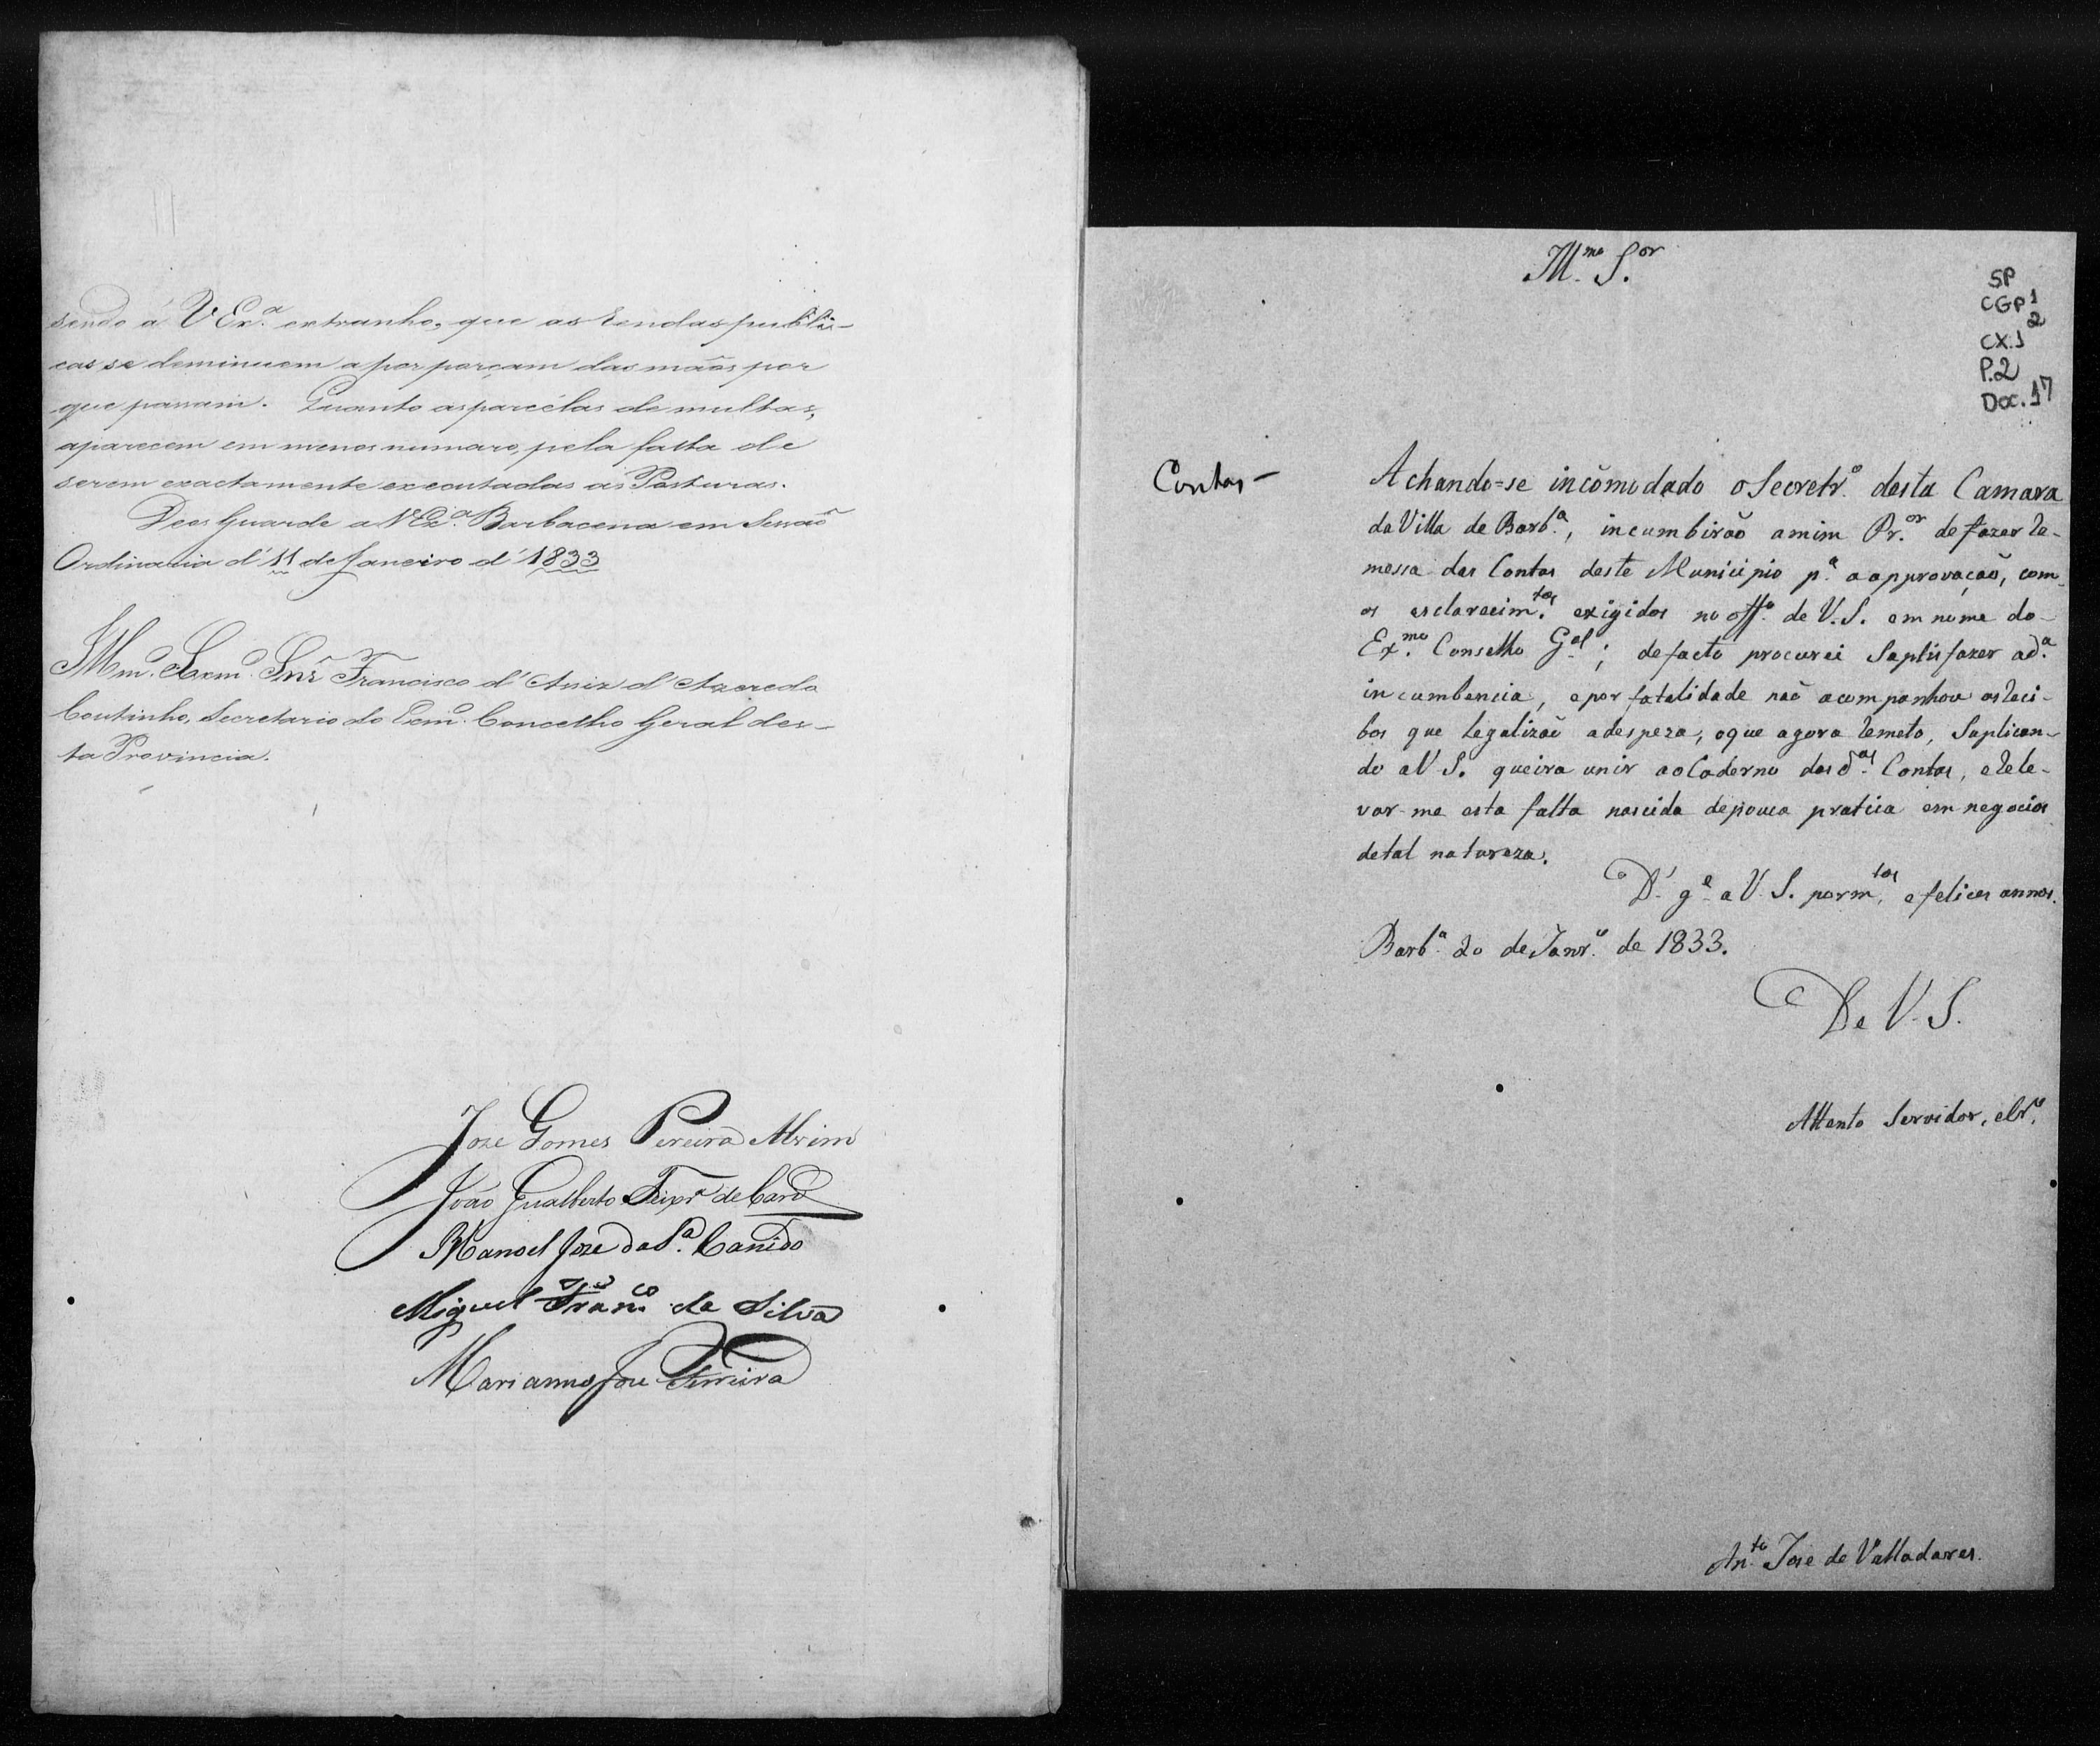 sendo á V Ex.ª extranho, que as rendas publi-
cas se deminuem a por porçam das maõs por
que passam. Quanto as parcélas de multas,
aparecem em menos numaro, pela falta de
serem exactamente executadas as Posturas.
Deos Guarde a V Ex.ª Barbacena em Sessaõ
Ordinaria d' 11 de Janeiro d' 1833
Illm.º Exm.º Snr. Francisco d' Assiz d' Azeredo
Coutinho, Secretario do Exm.º Concelho Geral des-
ta Provincia.
Joze Gomes Pereira Alvim
João Gualberto Teixr.ª de Carv.º
Manoel Joze da S.ª Canedo
Miguel Fran.co da Silva
Marianno Joze Ferreira
Illmo. S.or
SP
CGP 1
2
CX.1
P.2
Doc. 17
Contas -
Achando=se incõmodado o Secretr.º desta Camara
da Villa de Barb.ª, incumbirão a mim Pr.or de fazer re-
messa das Contas deste Municipio p.ª a approvação, com
os esclarecim.tos exigidos no off.º de V. S. em nome do
Ex.mo Conselho G.al; de facto procurei Saptisfazer a d.ª
incumbencia, e por fatalidade naõ acompanhou os reci-
bos que legalizaõ a despeza, o que agora remeto, Suplican-
do a V. S. queira unir ao Caderno das d.as Contas, e rele-
var-me esta falta nascida de pouca pratica em negocios
de tal natureza.
D.s g.e a V. S. por m.tos e felices annos.
Barb.ª 20 de Janr.º de 1833.
De V. S.
Attento Servidor, e Cr.º
An.to Jose de Valladares.